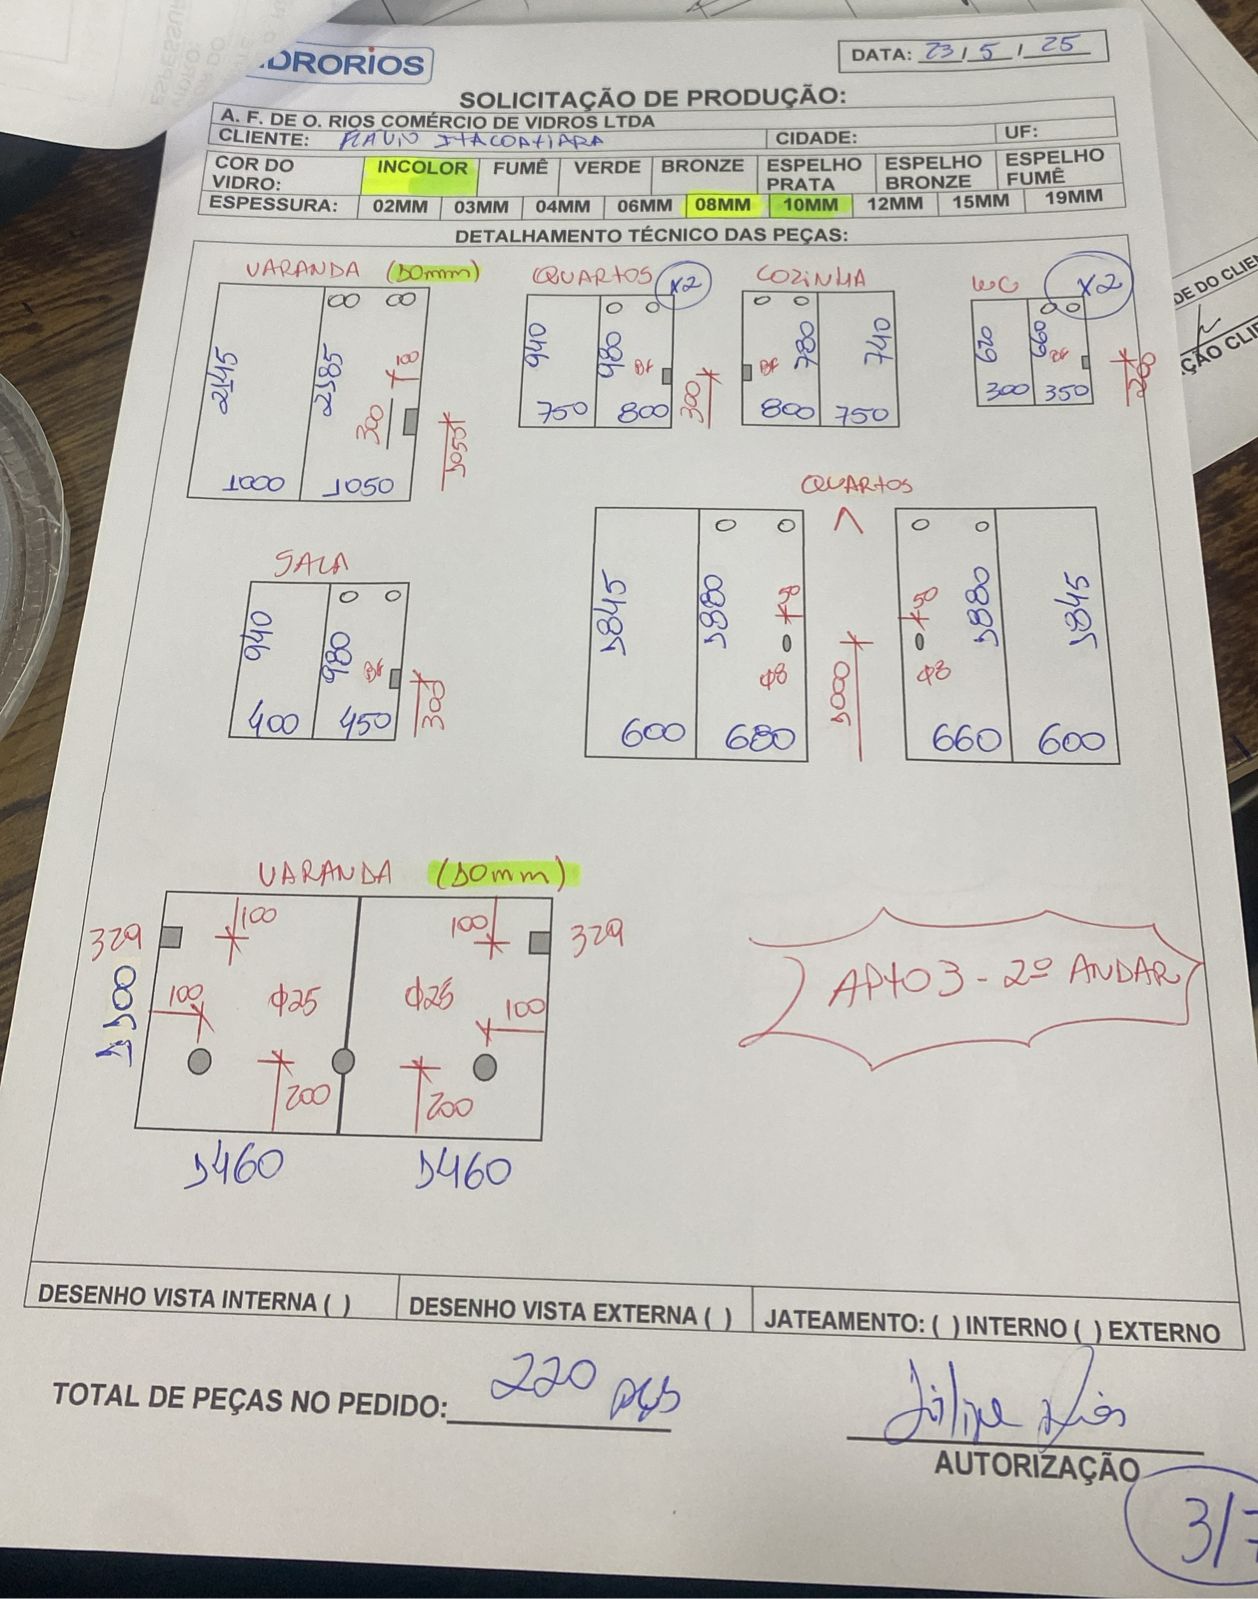 DRORIOS
DATA: 23/5/25
SOLICITAÇÃO DE PRODUÇÃO:
A. F. DE O. RIOS COMÉRCIO DE VIDROS LTDA
CLIENTE: FLAVIO ITACOATIARA CIDADE: UF:
COR DO VIDRO: INCOLOR FUMÊ VERDE BRONZE ESPELHO PRATA ESPELHO BRONZE ESPELHO FUMÊ
ESPESSURA: 02MM 03MM 04MM 06MM 08MM 10MM 12MM 15MM 19MM
DETALHAMENTO TÉCNICO DAS PEÇAS:
VARANDA (10mm)
2145 2185
300
1050
1000 1050
QUARTOS X2
940 980 BF
300
750 800
COZINHA
BF 780 740
800 750
WC X2
620 660 BF
200
300 350
SALA
940 980 BF
300
400 450
QUARTOS
1845 1880 50
Φ8
1000
50 1880 1845
Φ8
600 680
660 600
VARANDA (10mm)
329 100 100 329
1100
100 Φ25 Φ25 100
200 200
1460 1460
APTO 3 - 2º ANDAR
DESENHO VISTA INTERNA ( ) DESENHO VISTA EXTERNA ( ) JATEAMENTO: ( ) INTERNO ( ) EXTERNO
TOTAL DE PEÇAS NO PEDIDO: 220 pçs
Filipe Rios
AUTORIZAÇÃO
3/7
DE DO CLIE
ÇÃO CLI